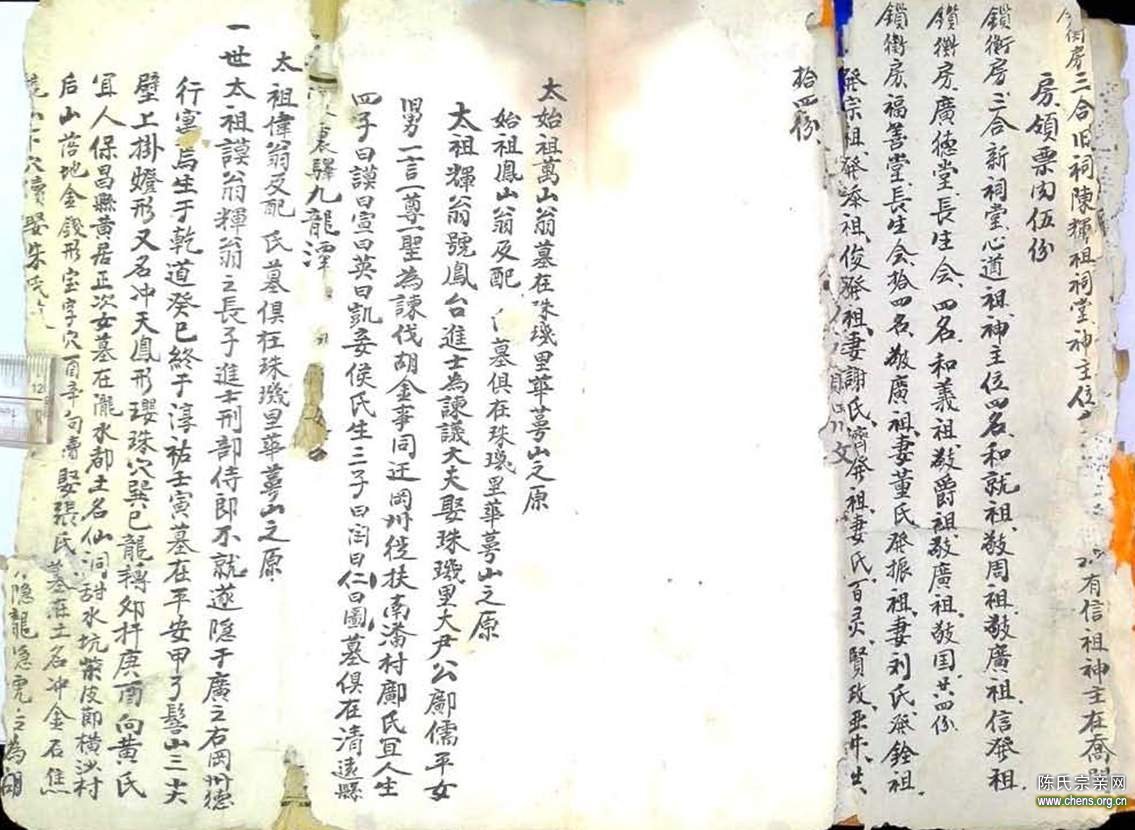 房三合旧祠陳輝祖祠堂神主位
房領票肉伍份
鎖衡房三合新祠堂心道祖神主位四名和就祖敬周祖敬廣祖信發祖
有信祖神主在喬
鎖衡房廣德堂長生会四名和義祖敬爵祖敬廣祖敬国共四份
鎖衡房福善堂長生会拾四名敬廣祖妻董氏發振祖妻利氏發銓祖
發宗祖發泰祖俊發祖妻謝氏濟發祖妻氏百灵賢政
拾四份
太始祖萬山翁墓在珠璣里華萼山之原
始祖鳳山翁及配 氏墓俱在珠璣里華萼山之原
太祖輝翁號鳳台進士為諫議大夫娶珠璣里大尹公鄺儒平女
男一言一尊一聖為諫伐胡金事同迁岡州徙扶南滘村鄺氏宜人生
四子曰謨曰宣曰英曰凱妾侯氏生三子曰闰曰仁曰圖墓俱在清遠縣
裏驛九龍潭
太祖偉翁及配 氏墓俱在珠璣里華萼山之原
一世太祖謨翁輝翁之長子進士刑部侍郎不就遂隱于廣之右岡州德
行寓焉生于乾道癸巳終于淳祐壬寅墓在平安甲了髻山三尖
壁上掛燈形又名冲天鳳形瓔珠穴巽巳龍轉卯扦庚酉向黄氏
宜人保昌縣黄居正次女墓在瀧水都土名仙洞甜水坑紫皮節橫沙村
后山落地金錢形宝字穴酉辛向 娶張氏墓在土名冲金石焦
山下穴續娶朱氏
隐龍隐虎